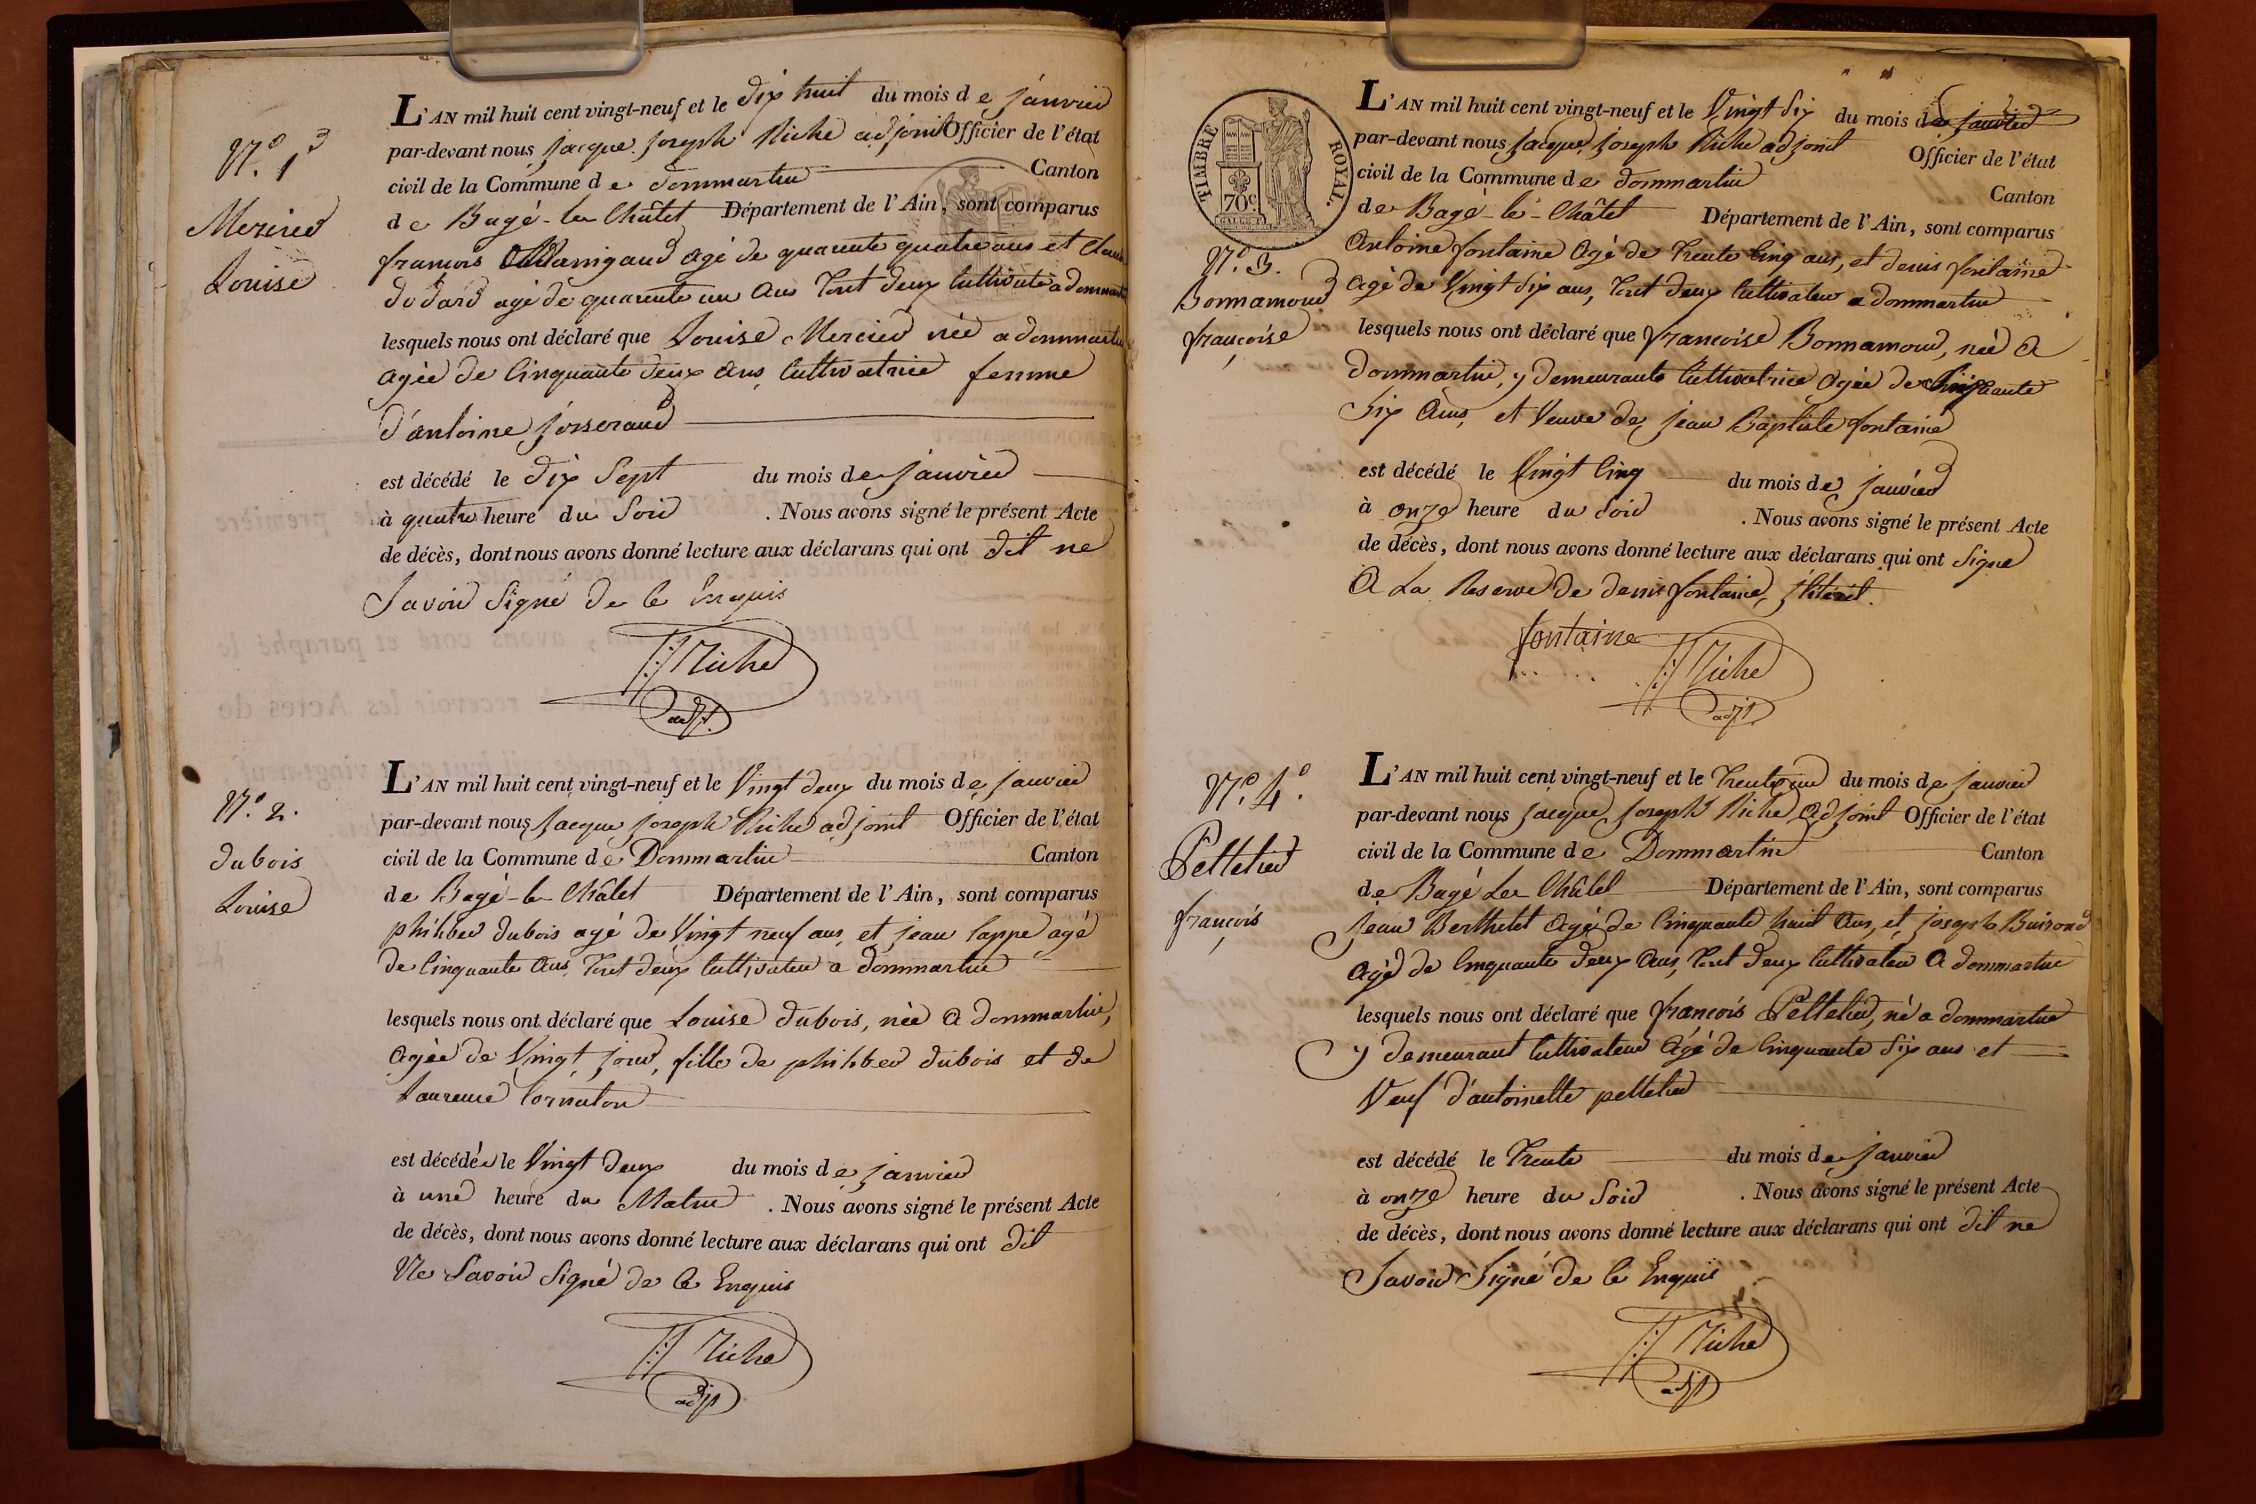 N.º 1er
Mercier
Louise
L'AN mil huit cent vingt-neuf et le dix huit du mois de janvier
par-devant nous jacque joseph Riche adjoint Officier de l'état
civil de la Commune de dommartin Canton
de Bagé-le Châtel Département de l'Ain, sont comparus
francois agé de quarente quatre ans et Claude
dodard agé de quarente un ans tout deux Cultivateur a dommartin
lesquels nous ont déclaré que Louise Mercier née a dommartin
agée de Cinquante deux ans Cultivatrice femme
d'antoine josserand
est décédé le dix Sept du mois de janvier
à quatre heure du Soir . Nous avons signé le présent Acte
de décès, dont nous avons donné lecture aux déclarans qui ont dit ne
Savoir Signé de ce Enquis
Riche
adjt.
N.º 2.
dubois
Louise
L'AN mil huit cent vingt-neuf et le Vingt deux du mois de janvier
par-devant nous jacque joseph Riche adjoint Officier de l'état
civil de la Commune de Dommartin Canton
de Bagé-le Châtel Département de l'Ain, sont comparus
philiber dubois agé de Vingt neuf ans, et jean Cappe agé
de Cinquante ans, tout deux Cultivateur a dommartin
lesquels nous ont déclaré que Louise dubois, née a dommartin,
agée de Vingt jour, fille de philiber dubois et de
Laurence Cornaton
est décédée le Vingt deux du mois de janvier
à une heure du Matin . Nous avons signé le présent Acte
de décès, dont nous avons donné lecture aux déclarans qui ont dit
Ne Savoir Signé de ce Enquis
Riche
adjt
TIMBRE ROYAL.
70c
N.º 3.
Bonnamour
françoise
L'AN mil huit cent vingt-neuf et le Vingt Six du mois de janvier
par-devant nous jacque joseph Riche adjoint Officier de l'état
civil de la Commune de dommartin Canton
de Bagé-le-Châtel Département de l'Ain, sont comparus
Antoine fontaine agé de trente Cinq ans, et denis fontaine
agé de Vingt Six ans, tout deux Cultivateur a dommartin
lesquels nous ont déclaré que françoise Bonnamour, née a
dommartin, y demeurante Cultivatrice agée de Cinquante
Six ans, et Veuve de jean Baptiste fontaine
est décédé le Vingt Cinq du mois de janvier
à onze heure du Soir . Nous avons signé le présent Acte
de décès, dont nous avons donné lecture aux déclarans qui ont Signe
a La Reserve de denis fontaine, jlitéré.
fontaine
Riche
adjt
N.º 4.º
Pelletier
françois
L'AN mil huit cent vingt-neuf et le trente un du mois de janvier
par-devant nous jacque joseph Riche adjoint Officier de l'état
civil de la Commune de Dommartin Canton
de Bagé Le Châtel Département de l'Ain, sont comparus
jean Berthelet agé de Cinquante huit ans, et joseph Buirond
agé de Cinquante deux ans, tout deux Cultivateur a dommartin
lesquels nous ont déclaré que françois Pelletier, né a dommartin
y demeurant Cultivateur agé de Cinquante Six ans et
Veuf d'antoinette pelletier
est décédé le trente du mois de janvier
à onze heure du Soir . Nous avons signé le présent Acte
de décès, dont nous avons donné lecture aux déclarans qui ont dit ne
Savoir Signé de ce Enquis
Riche
adjt